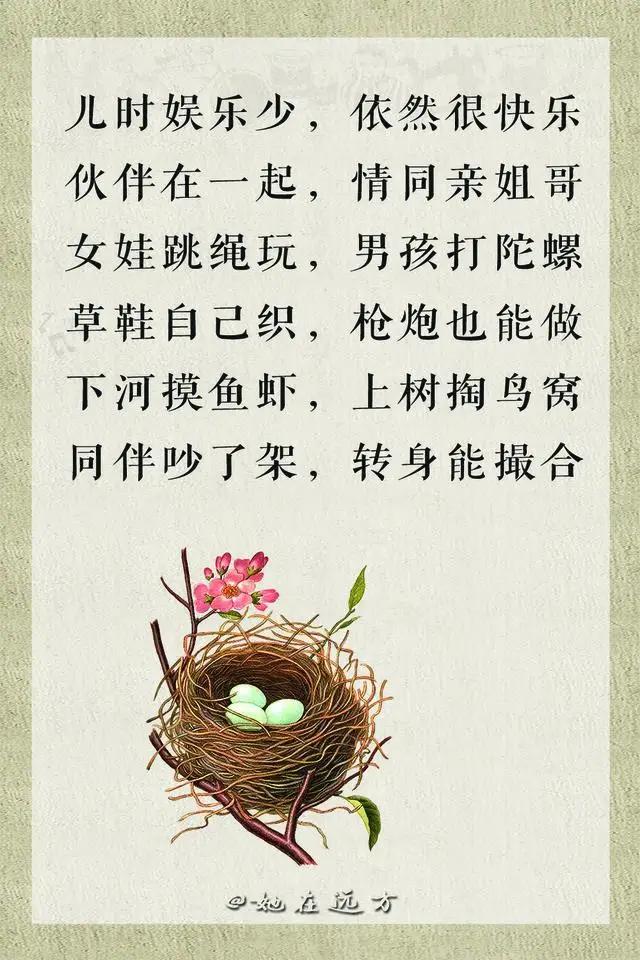 儿时娱乐少，依然很快乐
伙伴在一起，情同亲姐哥
女娃跳绳玩，男孩打陀螺
草鞋自己织，枪炮也能做
下河摸鱼虾，上树掏鸟窝
同伴吵了架，转身能撮合
@她在远方